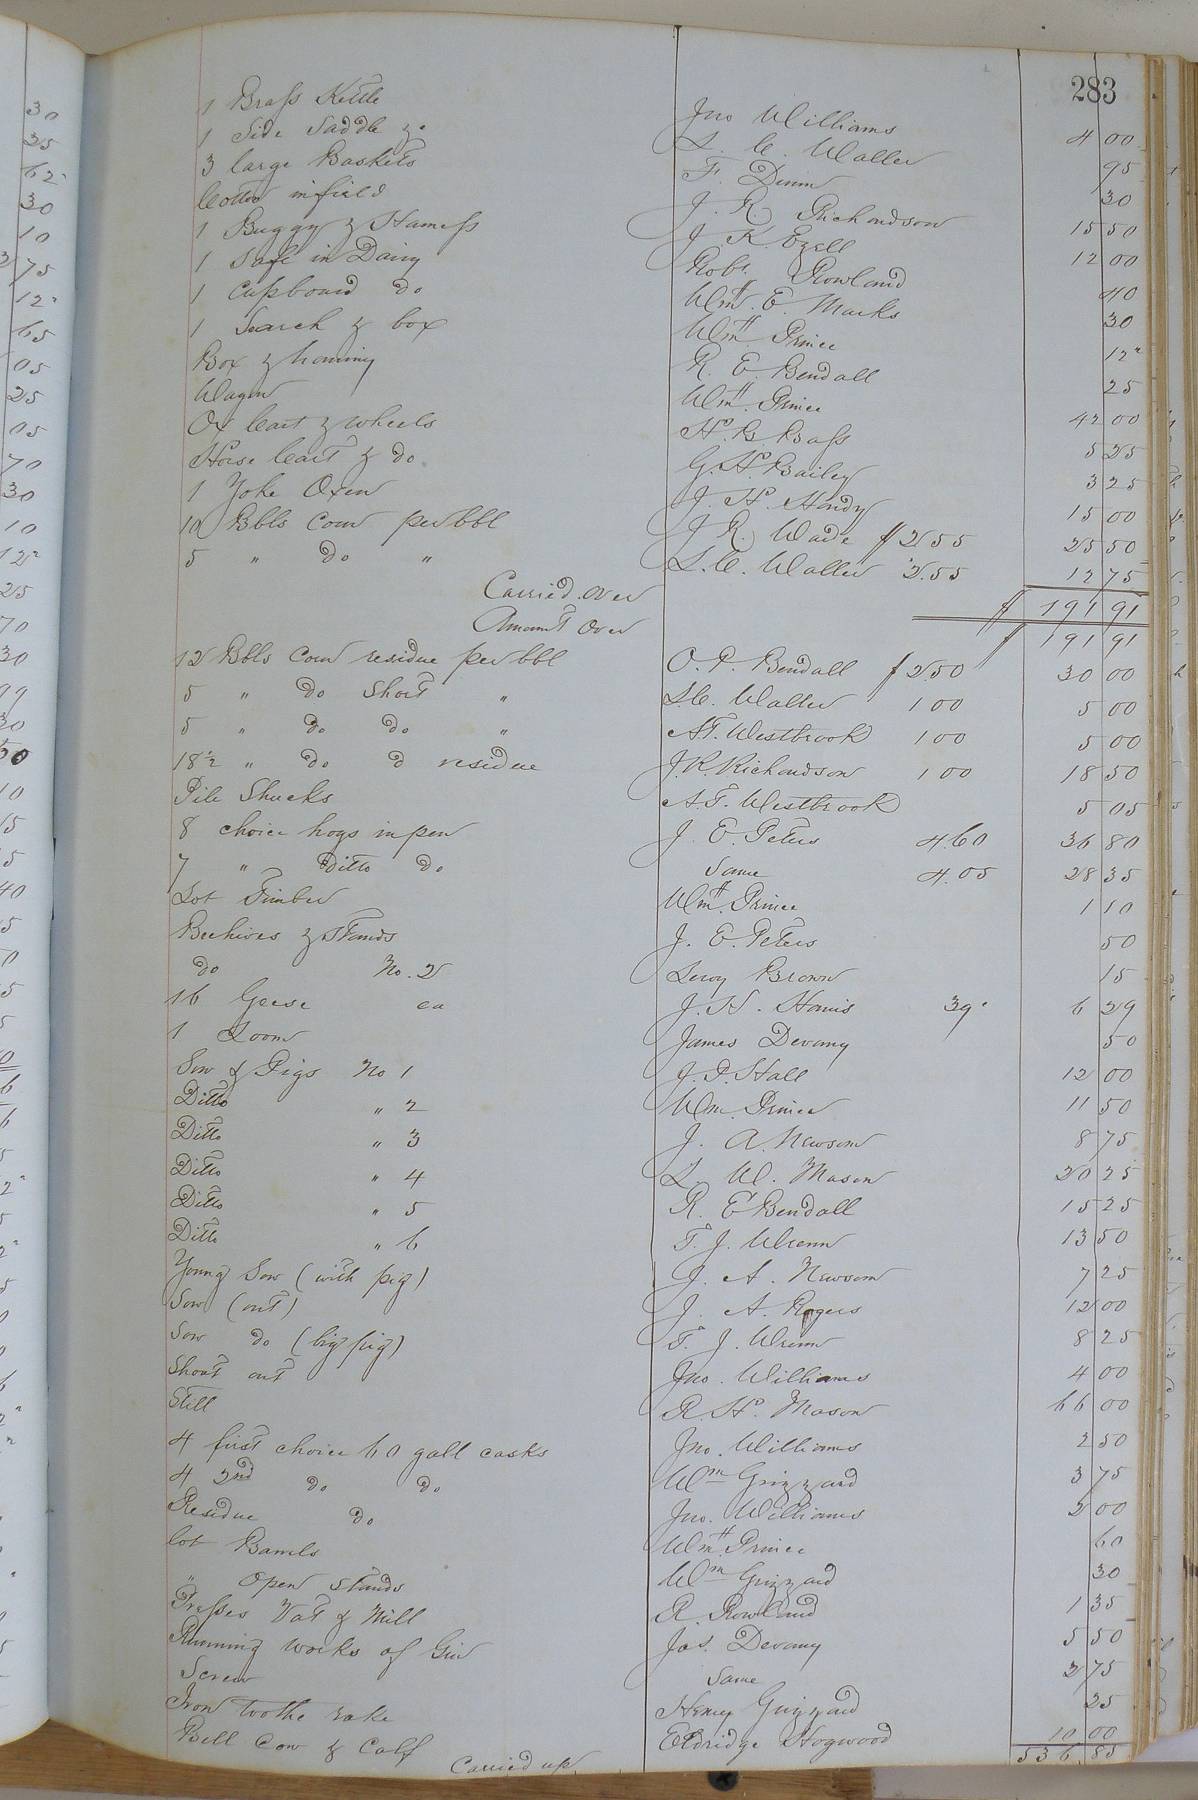 283
1 Brass Kettle Jno Williams 4 00
1 Side Saddle &c L. C. Waller 95
3 large Baskets F. Dunn 30
Cotton in field J. R. Richardson 15 50
1 Buggy & Harness J. K. Ezell 12 00
1 Safe in Dairy Robt. Rowland 40
1 Cupboard do Wm. E. Marks 30
1 Search & box Wm H Prince 12
Box & hominy R. E. Bendall 25
Wagon Wm H Prince 42 00
Ox Cart & wheels H. B. Bass 5 25
Horse Cart & do G. H. Bailey 3 25
1 Yoke Oxen J. H. Handy 15 00
10 Bbls Corn per bbl J. R. Wade $2 55 25 50
5 " do " L. C. Waller 2.55 12 75
Carried over $ 191 91
Amount Over $ 191 91
12 Bbls Corn residue per bbl O. P. Bendall $2.50 30 00
5 " do Short " L. C. Waller 1 00 5 00
5 " do do " A. T. Westbrook 1 00 5 00
18½ " do d residue J. R. Richardson 1 00 18 50
Pile Shucks A. T. Westbrook 5 05
8 choice hogs in pen J. E. Peters 4.60 36 80
7 " Ditto do Same 4.05 28 35
Lot Timber Wm H Prince 1 10
Beehives & Stands J. E. Peters 50
do No. 2 Leroy Brown 15
16 Geese ea J. N. Harris 39 6 29
1 Loom James Devany 50
Sow & Pigs No 1 J. P. Hall 12 00
Ditto " 2 Wm. Prince 11 50
Ditto " 3 J. A. Newsom 8 75
Ditto " 4 L. W. Mason 20 25
Ditto " 5 R. E Bendall 15 25
Ditto " 6 T. J. Wrenn 13 50
Young Sow (with pig) J. A. Newsom 7 25
Sow (out) J. A. Rogers 12 00
Sow do (big pig) T. J. Wrenn 8 25
Shoat out Jno. Williams 4 00
Still R. H. Mason 66 00
4 first choice 60 gall casks Jno. Williams 2 50
4 2nd do do Wm Grizzard 3 75
Residue do Jno. Williams 2 00
lot Barrels Wm H Prince 60
" Open Stands Wm Grizzard 30
Presses Vat & Mill R. Rowland 1 35
Running works of Gin Jas. Devany 5 50
Screw Same 2 75
Iron toothe rake Henry Grizzard 25
Bell Cow & Calf Eldridge Hogwood 10 00
Carried up 536 85